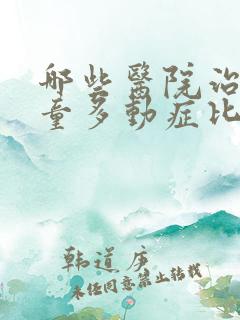 哪些醫院治
童多動症比
韩道序
未经同意禁止转载